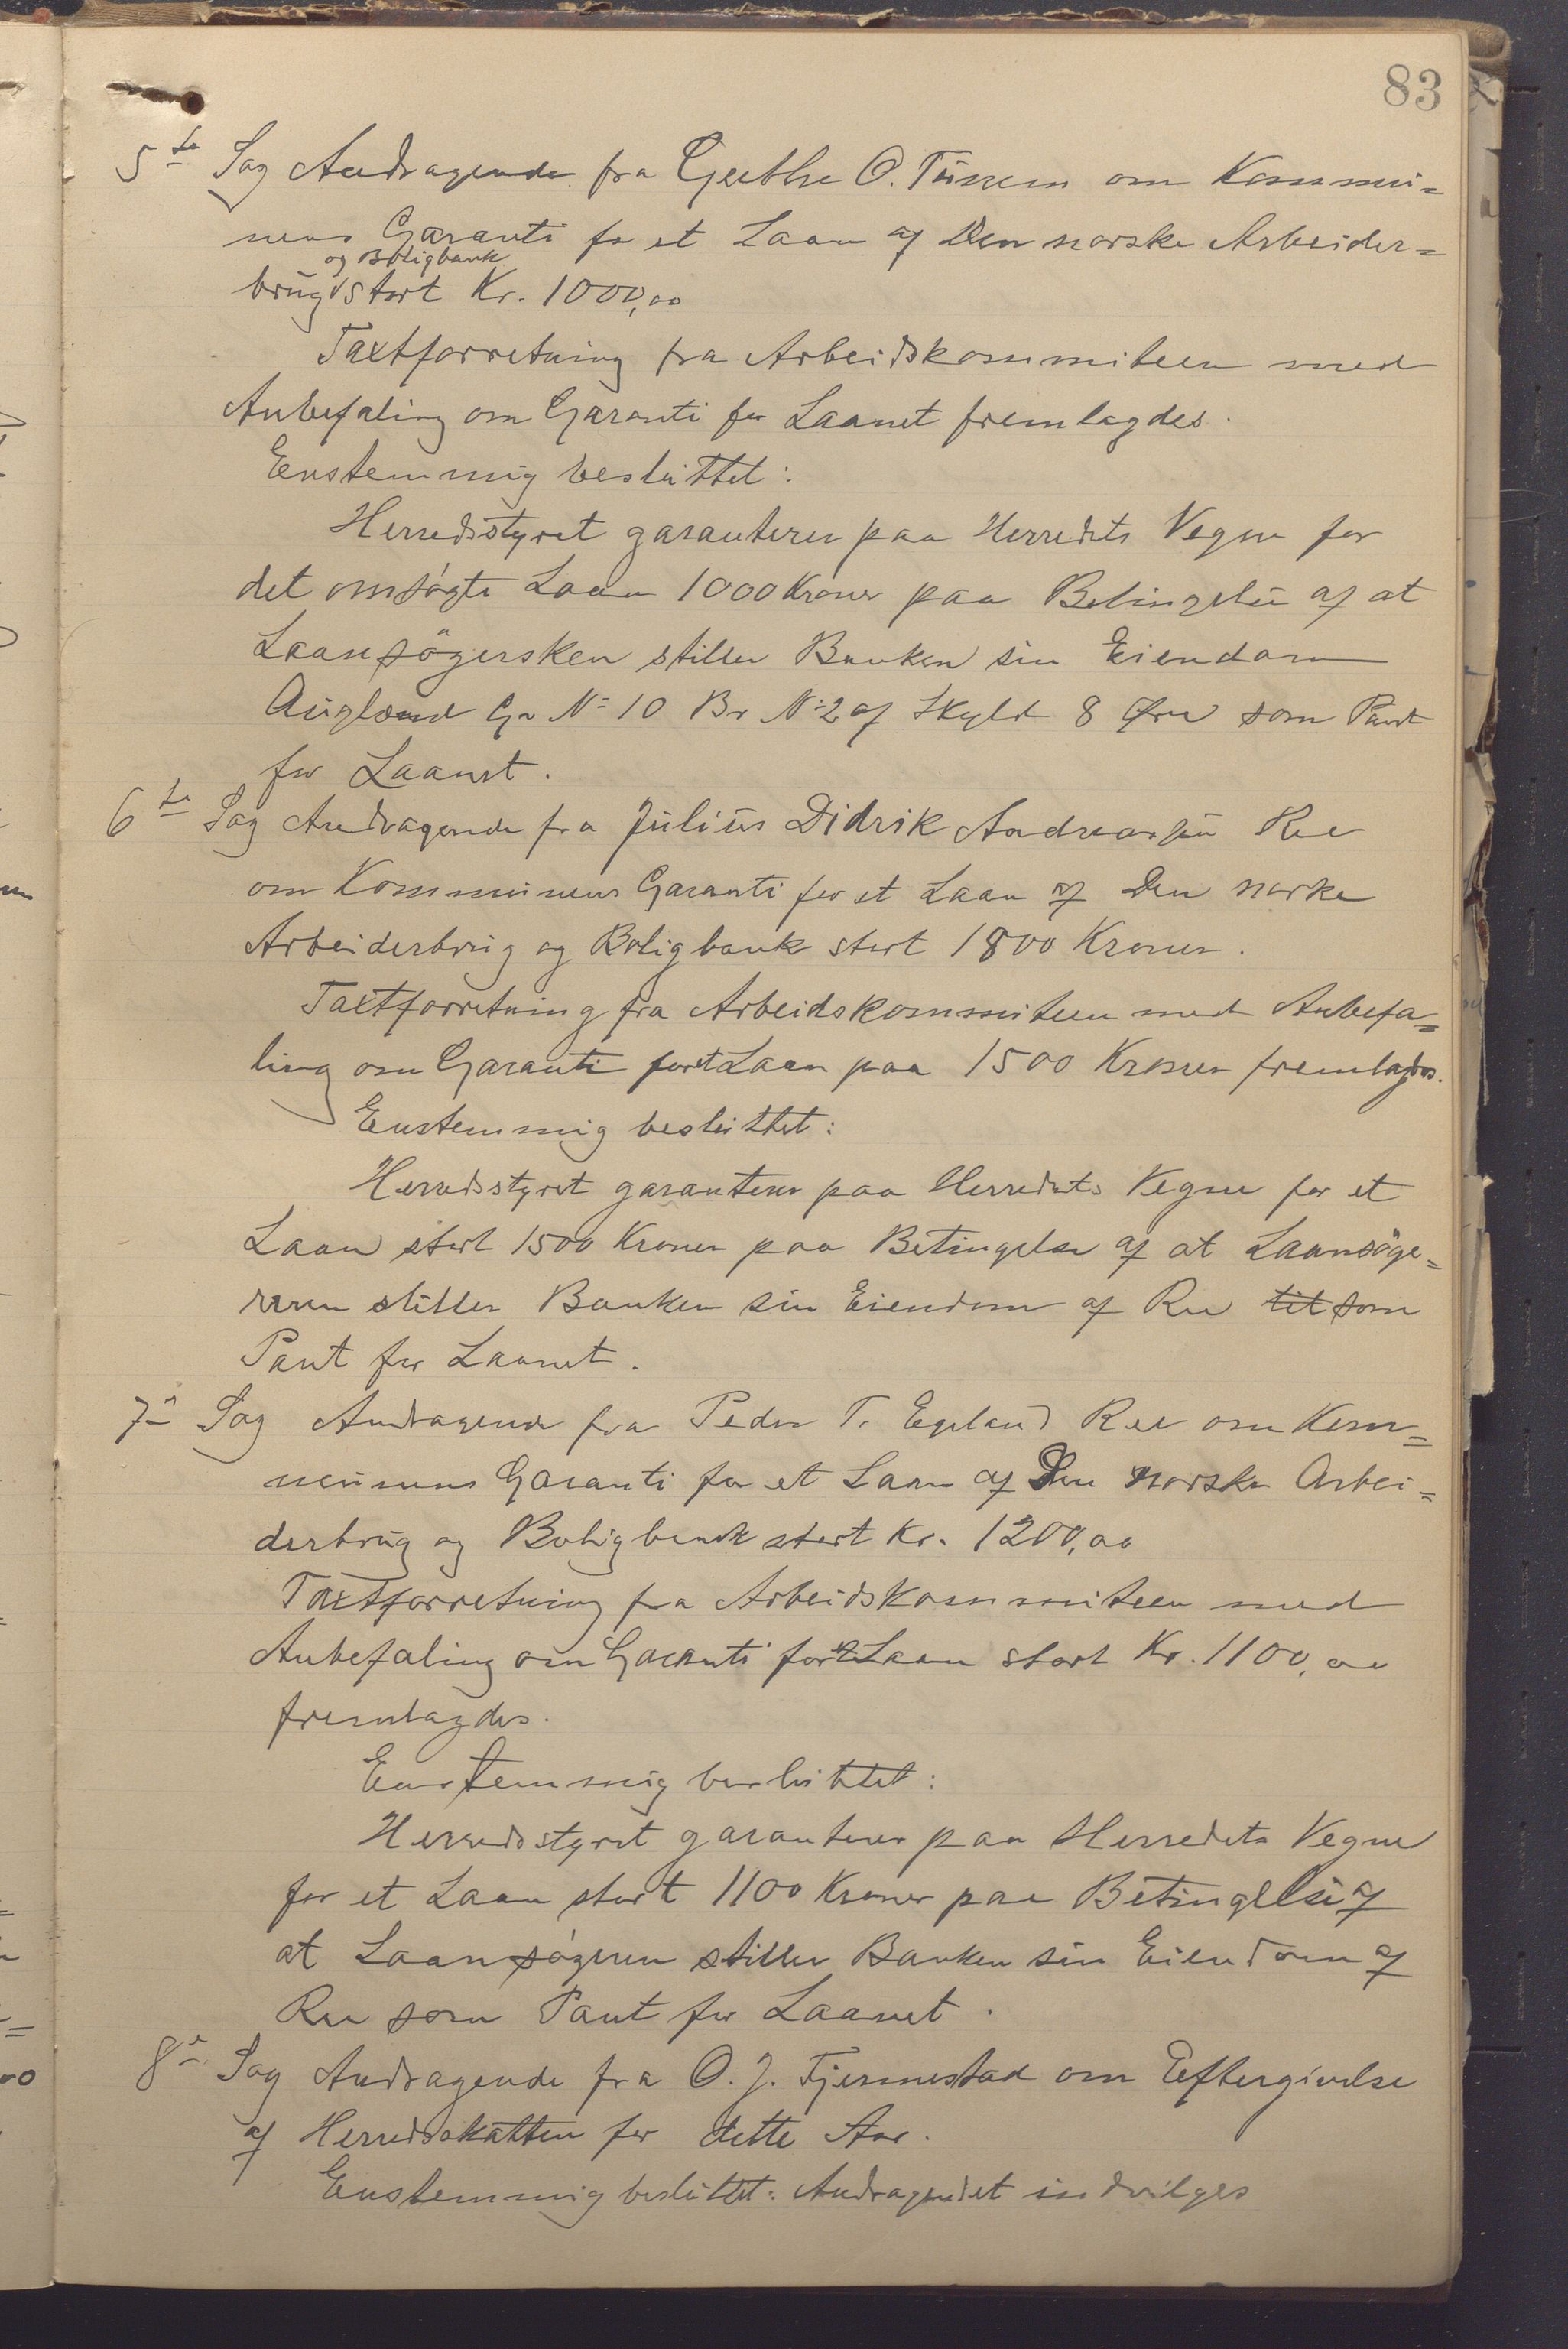 83
5te Sag Andragende fra Gurthe O. Tunem om Kommu=
nens Garanti for et Laan af Den norske Arbeider=
og Boligbank
brug stort Kr. 1000,00
Taxtforretning fra Arbeidskommiteen med
Anbefaling om Garanti for Laanet fremlagdes.
Enstemmig besluttet:
Herredsstyret garanterer paa Herredets Vegne for
det omsögte Laan 1000 Kroner paa Betingelse af at
Laansögersken stiller Banken sin Eiendom
Augland Gr No 10 Br No 2 af Skyld 8 Øre som Pant
for Laanet.
6te Sag Andragende fra Julius Didrik Andreassen Ree
om Kommunens Garanti for et Laan af Den norke
Arbeiderbrug og Boligbank stort 1800 Kroner.
Taxtforretning fra Arbeidskommiteen med Anbefa=
ling om Garanti for et Laan paa 1500 Kroner fremlagdes.
Enstemmig besluttet:
Herredsstyret garanterer paa Herredets Vegne for et
Laan stort 1500 Kroner paa Betingelse af at Laansöge=
reren stiller Banken sin Eiendom af Ree til som
Pant for Laanet.
7de Sag Andragende fra Peder T. Egeland Ree om Kom=
munens Garanti for et Laan af Den norske Arbei=
derbrug og Boligbank stort Kr. 1200,00
Taxtforretning fra Arbeidskommiteen med
Anbefaling om Garanti for et Laan stort Kr. 1100,00
fremlagdes.
Enstemmig besluttet:
Herredsstyret garanterer paa Herredets Vegne
for et Laan stort 1100 Kroner paa Betingelse af
at Laansøgeren stiller Banken sin Eiendom af
Ree som Pant for Laanet.
8de Sag Andragende fra O. J. Tjermestad om Eftergivelse
af Herredsskatten for dette Aar.
Enstemmig besluttet: Andragendet indvilges